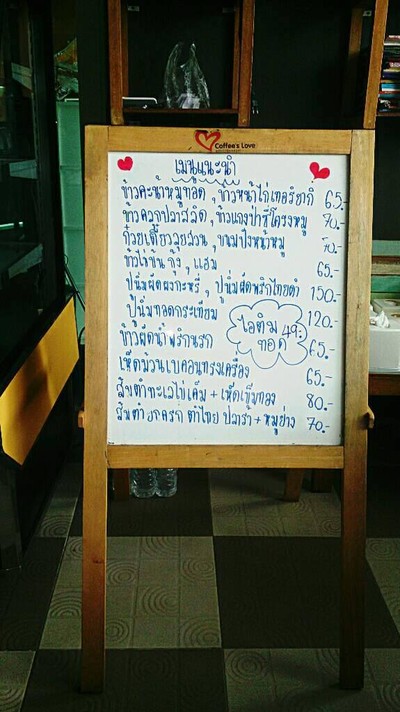 Coffee's Love
เมนูแนะนำ
ข้าวคะน้าหมูทอด , ข้าวหน้าไก่เทอริยากิ 65.-
ข้าวคลุกปลาสลิด , ข้าวแกงป่าซี่โครงหมู 70.-
ก๋วยเตี๋ยวลุยสวน , ขนมปังหน้าหมู 70.-
ข้าวไข่ข้น กุ้ง , แฮม 65.-
ปูนิ่มผัดผงกะหรี่ , ปูนิ่มผัดพริกไทยดำ 150.-
ปูนิ่มทอดกระเทียม 120.-
ไอติมทอด 49.-
ข้าวผัดน้ำพริกนรก 65.-
เห็ดม้วนเบคอนทรงเครื่อง 65.-
ส้มตำทะเลไข่เค็ม + เห็ดเข็มทอง 80.-
ส้มตำ ตำไทย ปลาร้า + หมูย่าง 70.-